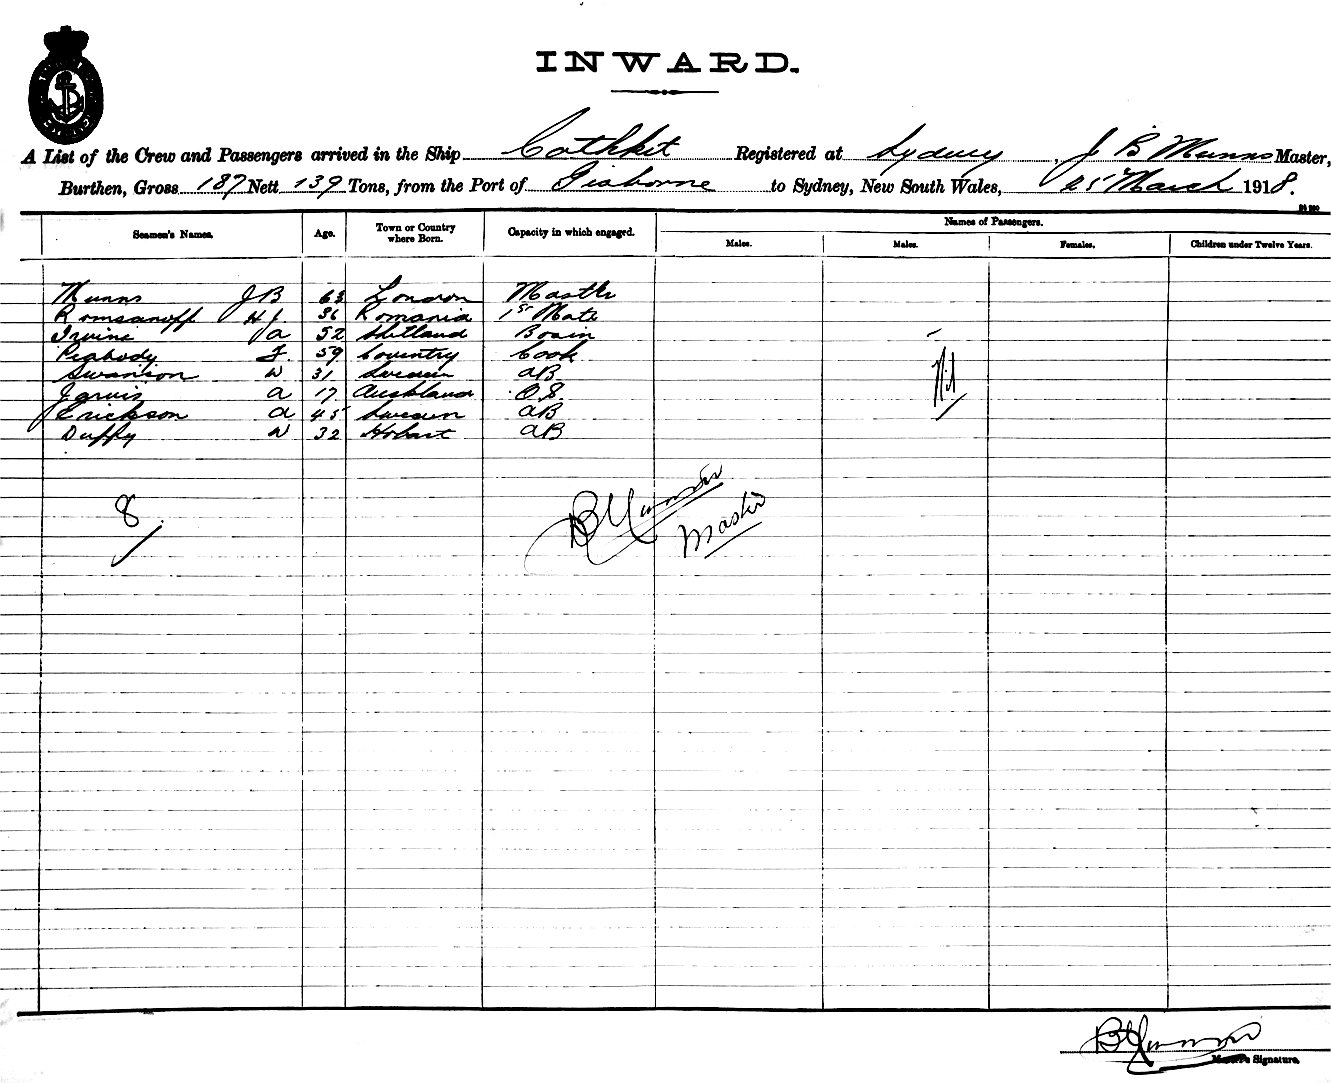 INWARD.
A List of the Crew and Passengers arrived in the Ship Cathkit Registered at Sydney, J B Munns Master,
Burthen, Gross 187 Nett 139 Tons, from the Port of Gisborne to Sydney, New South Wales, 25 March 1918.
Seamen's Names. Age. Town or Country where Born. Capacity in which engaged. Names of Passengers.
Males. Males. Females. Children under Twelve Years.
Munns J B 63 London Master
Romsanoff H J. 36 Romania 1st Mate
Irvine A 52 Shetland Bosin
Peabody F. 59 Coventry Cook
Swanson W 31 Sweden AB
Jarvis A 17 Auckland O.S.
Erickson A 45 Sweden AB
Duffy W 32 Hobart AB
Nil
8
Munns
Master
Master's Signature.